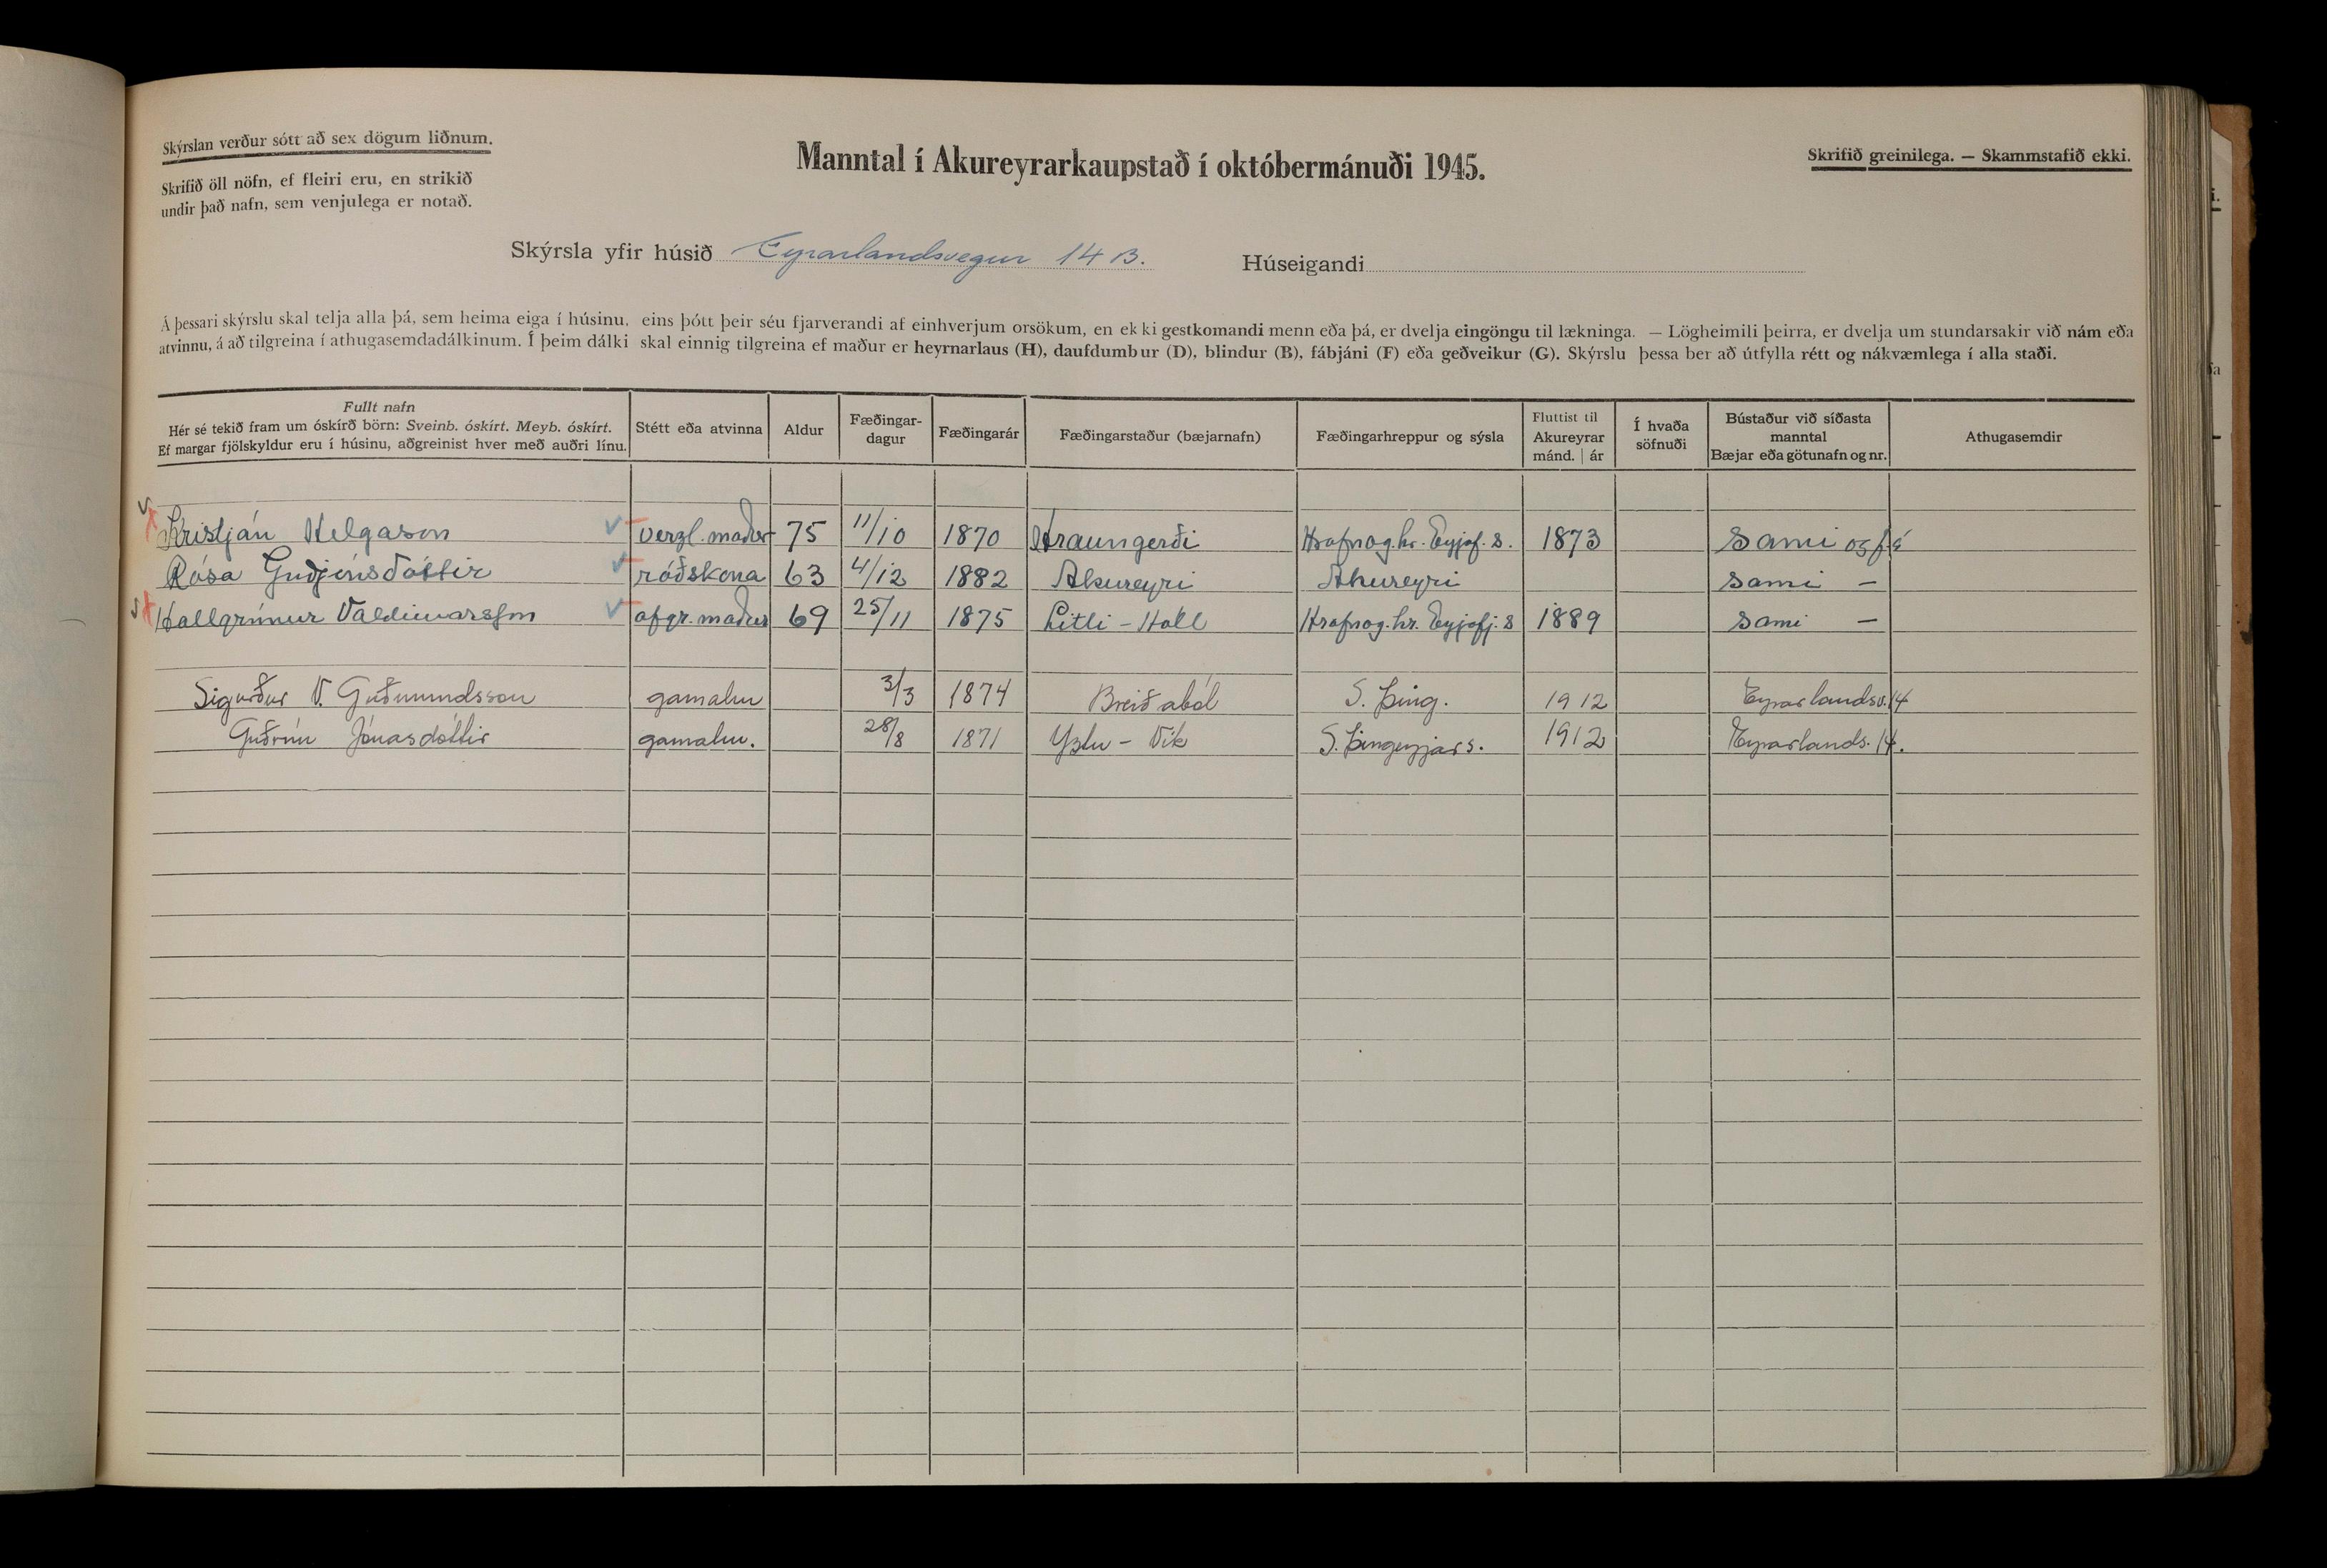 Skýrslan verður sótt að sex dögum liðnum.
Skrifið öll nöfn, ef fleiri eru, en strikið
undir það nafn, sem venjulega er notað.
Manntal í Akureyrarkaupstað í októbermánuði 1945.
Skrifið greinilega. — Skammstafið ekki.
Skýrsla yfir húsið Eyrarlandsvegur 14 B. Húseigandi
Á þessari skýrslu skal telja alla þá, sem heima eiga í húsinu, eins þótt þeir séu fjarverandi af einhverjum orsökum, en ekki gestkomandi menn eða þá, er dvelja eingöngu til lækninga. — Lögheimili þeirra, er dvelja um stundarsakir við nám eða
atvinnu, á að tilgreina í athugasemdadálkinum. Í þeim dálki skal einnig tilgreina ef maður er heyrnarlaus (H), daufdumbur (D), blindur (B), fábjáni (F) eða geðveikur (G). Skýrslu þessa ber að útfylla rétt og nákvæmlega í alla staði.
Fullt nafn
Hér sé tekið fram um óskírð börn: Sveinb. óskírt. Meyb. óskírt.
Ef margar fjölskyldur eru í húsinu, aðgreinist hver með auðri línu.
Stétt eða atvinna
Aldur
Fæðingar-
dagur
Fæðingarár
Fæðingarstaður (bæjarnafn)
Fæðingarhreppur og sýsla
Fluttist til
Akureyrar
mánd. | ár
Í hvaða
söfnuði
Bústaður við síðasta
manntal
Bæjar eða götunafn og nr.
Athugasemdir
Kristján Helgason verzl.maður 75 11/10 1870 Hraungerði Hrafnag.hr. Eyjaf.s. 1873 Sami og f.á
Rósa Guðjónsdóttir ráðskona 63 4/12 1882 Akureyri Akureyri Sami —
Hallgrímur Valdimarsson afgr.maður 69 25/11 1875 Litli-Hóll Hrafnag.hr. Eyjafj.s 1889 Sami —
Sigurður V. Guðmundsson gamalm 3/3 1874 Breiðaból S. Þing. 1912 Eyrarlandsv. 14
Guðrún Jónasdóttir gamalm. 28/8 1871 Yztu-Vík S. Þingeyjars. 1912 Eyrarlands. 14.